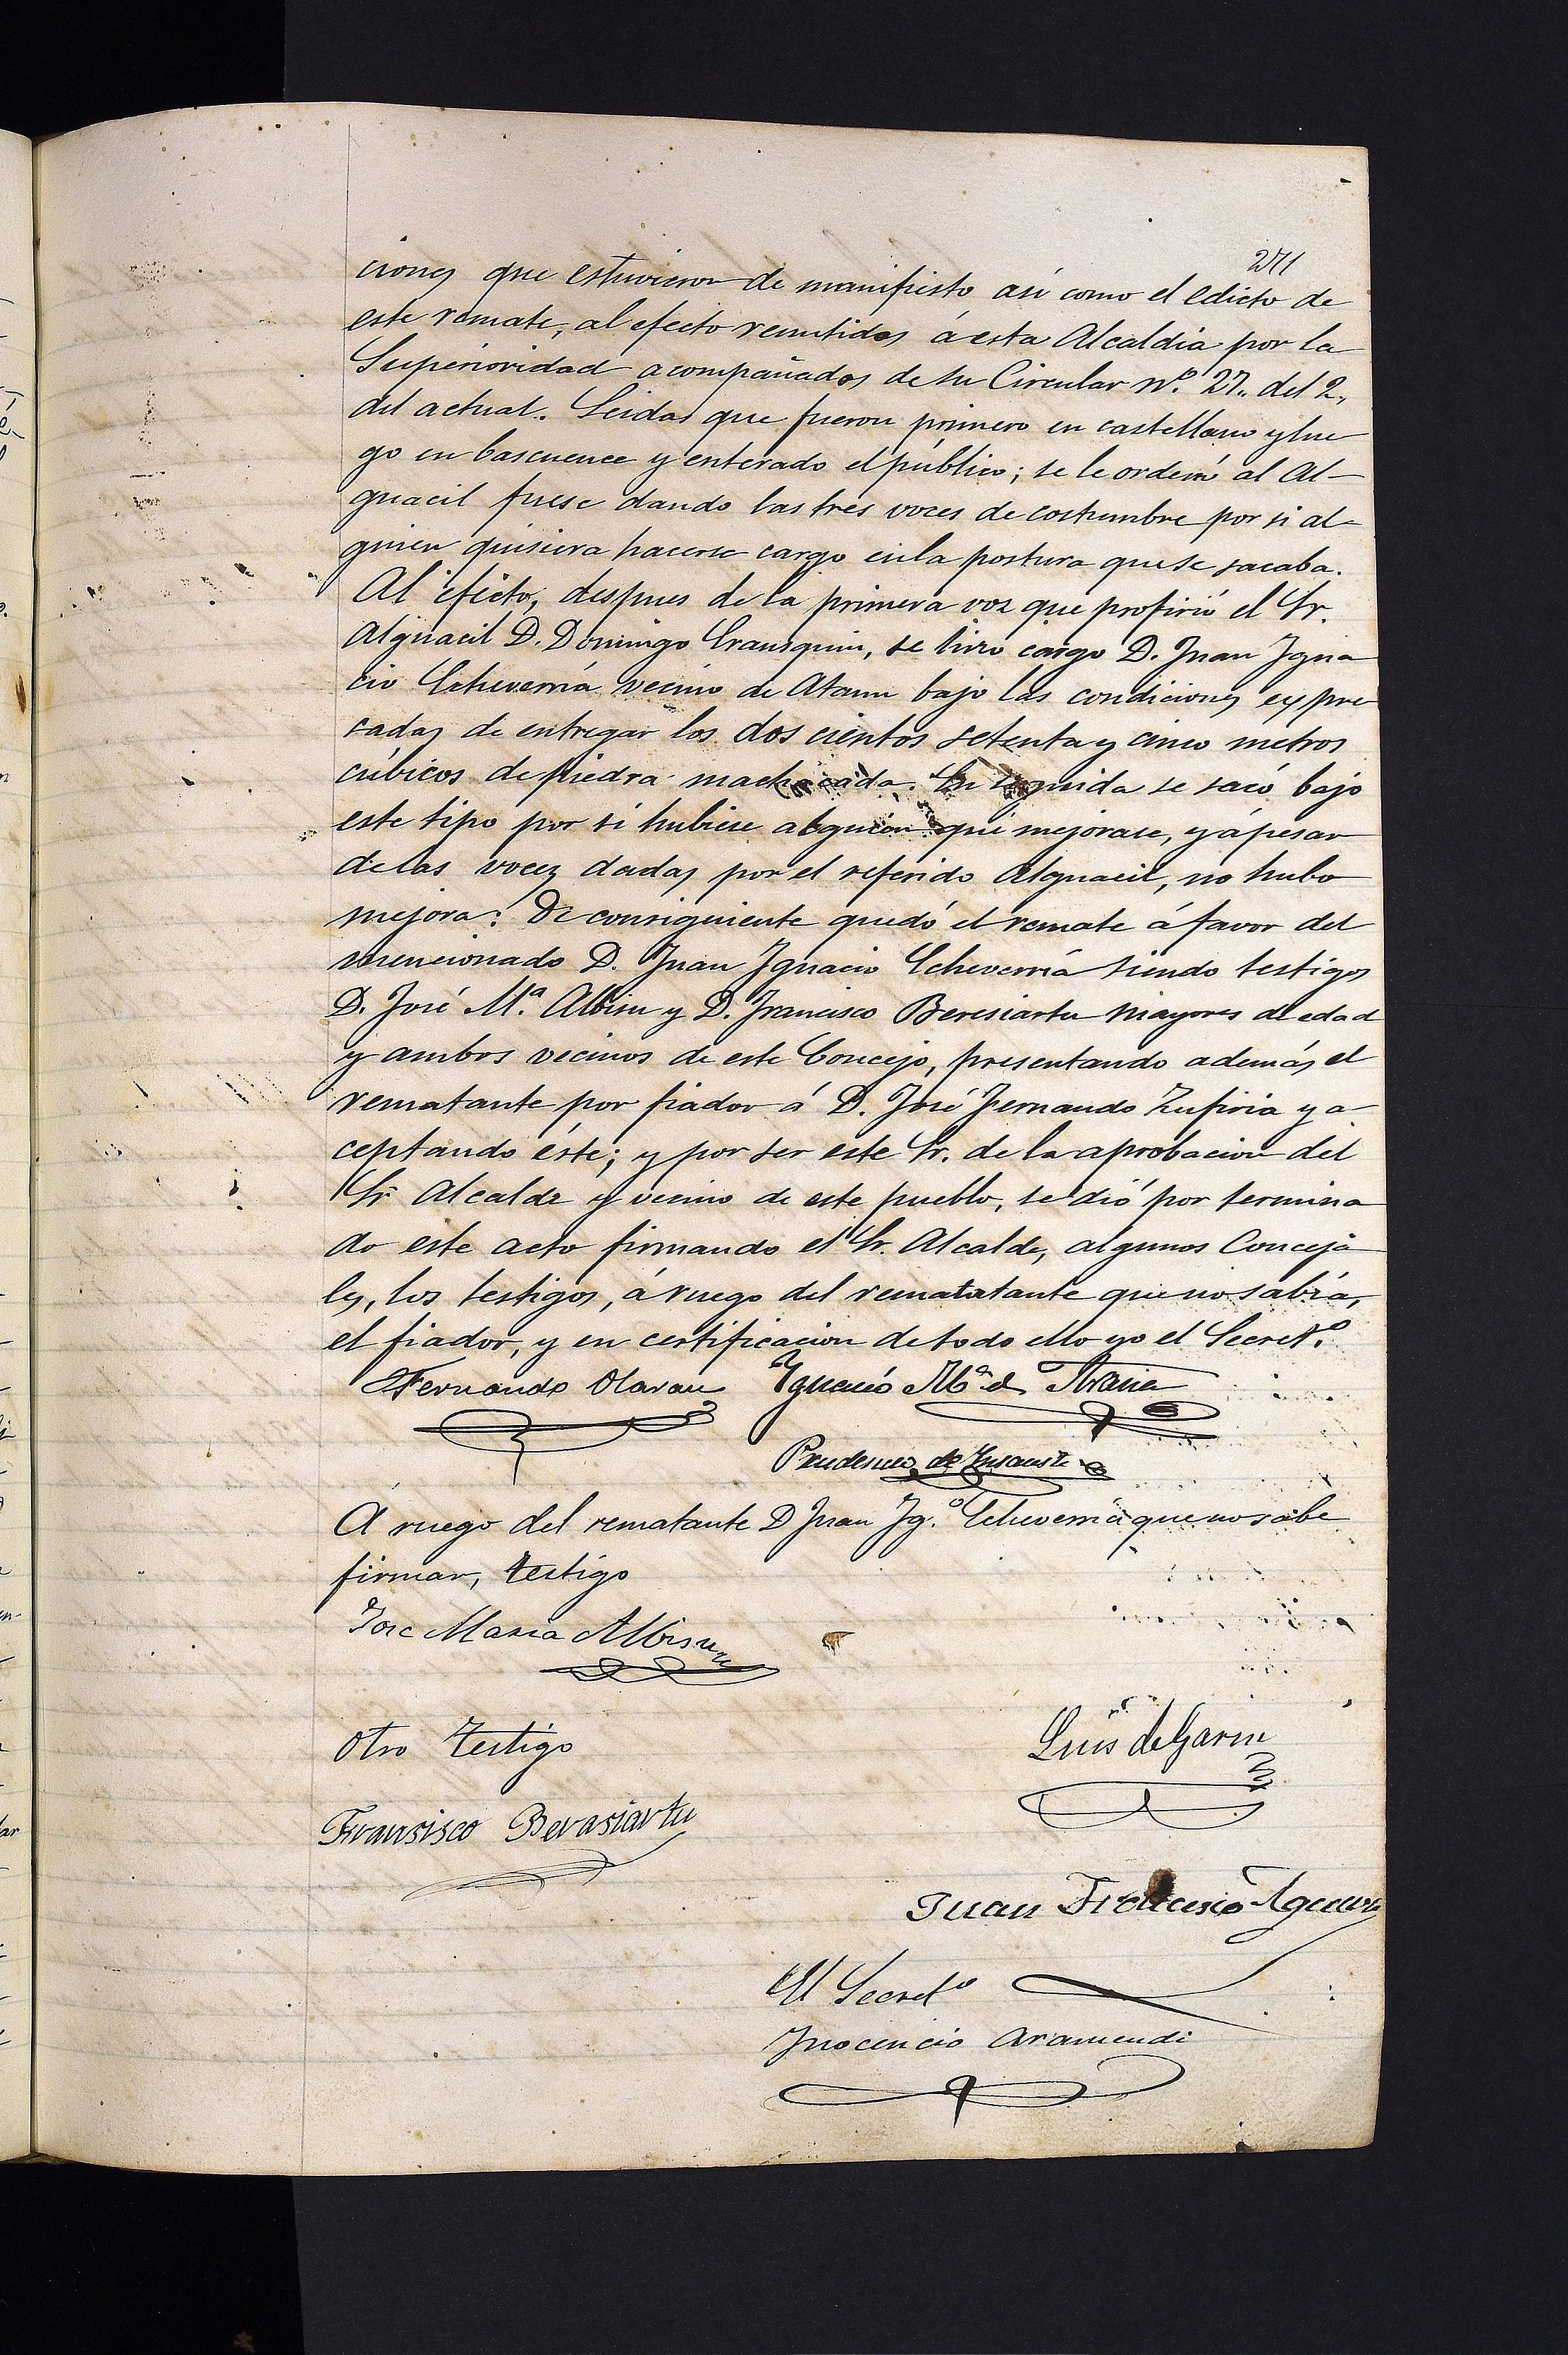 271
ciones que estuvieron de manifiesto así como el edicto de
este remate, al efecto remitidos á esta Alcaldia por la
Superioridad acompañados de su Circular nº. 27. del 2,
del actual. Leidas que fueron primero en castellano y lue
go en bascuence y enterado el público; se le ordenó al Al-
guacil fuese dando las tres voces de costumbre por si al-
guien quisiera hacerse cargo en la postura que se sacaba.
Al efecto, despues de la primera voz que profirió el Sr.
Alguacil D. Domingo Erausquin, se hizo cargo D. Juan Igna
cio Echeverría vecino de Ataun bajo las condiciones expre
sadas de entregar los dos cientos setenta y cinco metros
cúbicos de piedra machacada. En seguida se sacó bajo
este tipo por si hubiese alguien que mejorase, y á pesar
de las voces dadas por el referido Alguacil, no hubo
mejora: De consiguiente quedó el remate á favor del
mencionado D. Juan Ignacio Echeverría siendo testigos
D. José M.ª Albisu y D. Francisco Beresiartu mayores de edad
y ambos vecinos de este Concejo, presentando además el
rematante por fiador á D. José Fernando Zufiria y a
ceptando éste; y por ser este Sr. de la aprobacion del
Sr Alcalde y vecino de este pueblo, se dió por termina
do este acto firmando el Sr. Alcalde, algunos Conceja
les, los testigos, á ruego del rematatante que no sabía,
el fiador, y en certificacion de todo ello yo el Secretº.
Fernando Olaran Ignacio Mª de
Prudencio de Insausti
A ruego del rematante D Juan Ig.º Echeverria que no sabe
firmar, testigo
Jose Maria Albisu
Otro testigo
Luis de Garin
Fransisco Berasiartu
Juan Francisco Aguirre
El Secretº
Inocencio Aramendi